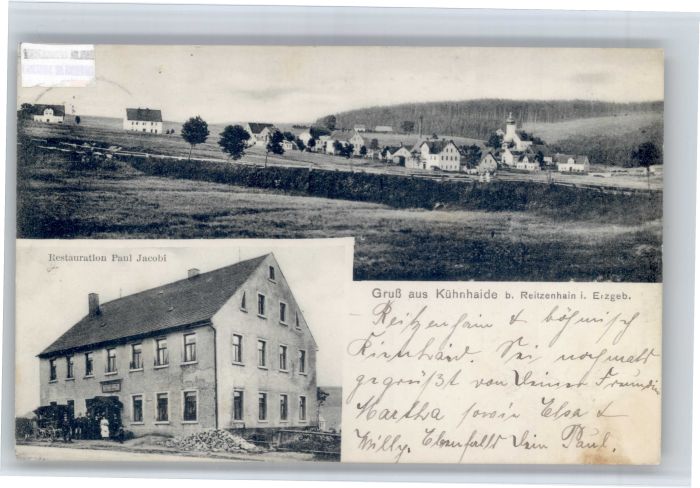 Restauration Paul Jacobi
Gruß aus Kühnhaide b. Reitzenhain i. Erzgeb.
– Reitzenhain & böhmisch
Sei nochmals
gegrüßt von Deiner Freundin
Martha sowie Elsa &
Willy. Ebenfalls Dein Paul.